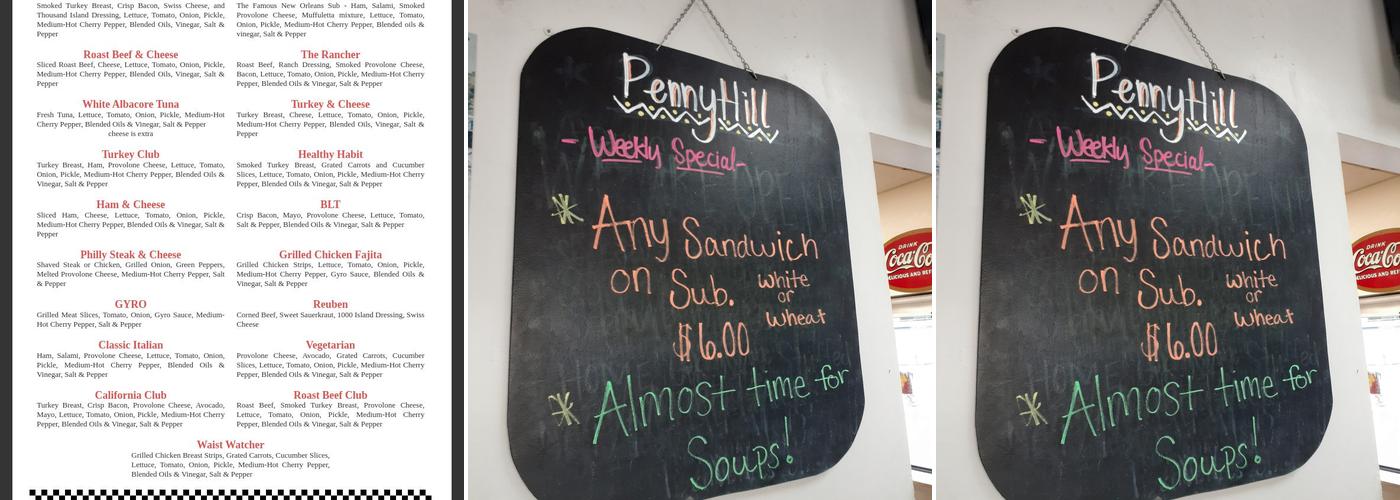 Smoked Turkey Breast, Crisp Bacon, Swiss Cheese, and
Thousand Island Dressing, Lettuce, Tomato, Onion, Pickle,
Medium-Hot Cherry Pepper, Blended Oils, Vinegar, Salt &
Pepper
The Famous New Orleans Sub - Ham, Salami, Smoked
Provolone Cheese, Muffuletta mixture, Lettuce, Tomato,
Onion, Pickle, Medium-Hot Cherry Pepper, Blended oils &
vinegar, Salt & Pepper
Roast Beef & Cheese
Sliced Roast Beef, Cheese, Lettuce, Tomato, Onion, Pickle,
Medium-Hot Cherry Pepper, Blended Oils, Vinegar, Salt &
Pepper
The Rancher
Roast Beef, Ranch Dressing, Smoked Provolone Cheese,
Bacon, Lettuce, Tomato, Onion, Pickle, Medium-Hot Cherry
Pepper, Blended Oils & Vinegar, Salt & Pepper
White Albacore Tuna
Fresh Tuna, Lettuce, Tomato, Onion, Pickle, Medium-Hot
Cherry Pepper, Blended Oils & Vinegar, Salt & Pepper
cheese is extra
Turkey & Cheese
Turkey Breast, Cheese, Lettuce, Tomato, Onion, Pickle,
Medium-Hot Cherry Pepper, Blended Oils & Vinegar, Salt &
Pepper
Turkey Club
Turkey Breast, Ham, Provolone Cheese, Lettuce, Tomato,
Onion, Pickle, Medium-Hot Cherry Pepper, Blended Oils &
Vinegar, Salt & Pepper
Healthy Habit
Smoked Turkey Breast, Grated Carrots and Cucumber
Slices, Lettuce, Tomato, Onion, Pickle, Medium-Hot Cherry
Pepper, Blended Oils & Vinegar, Salt & Pepper
Ham & Cheese
Sliced Ham, Cheese, Lettuce, Tomato, Onion, Pickle,
Medium-Hot Cherry Pepper, Blended Oils & Vinegar, Salt &
Pepper
BLT
Crisp Bacon, Mayo, Provolone Cheese, Lettuce, Tomato,
Salt & Pepper, Blended Oils & Vinegar, Salt & Pepper
Philly Steak & Cheese
Shaved Steak or Chicken, Grilled Onion, Green Peppers,
Melted Provolone Cheese, Medium-Hot Cherry Pepper, Salt
& Pepper
Grilled Chicken Fajita
Grilled Chicken Strips, Lettuce, Tomato, Onion, Pickle,
Medium-Hot Cherry Pepper, Gyro Sauce, Blended Oils &
Vinegar, Salt & Pepper
GYRO
Grilled Meat Slices, Tomato, Onion, Gyro Sauce, Medium-
Hot Cherry Pepper, Salt & Pepper
Reuben
Corned Beef, Sweet Sauerkraut, 1000 Island Dressing, Swiss
Cheese
Classic Italian
Ham, Salami, Provolone Cheese, Lettuce, Tomato, Onion,
Pickle, Medium-Hot Cherry Pepper, Blended Oils &
Vinegar, Salt & Pepper
Vegetarian
Provolone Cheese, Avocado, Grated Carrots, Cucumber
Slices, Lettuce, Tomato, Onion, Pickle, Medium-Hot Cherry
Pepper, Blended Oils & Vinegar, Salt & Pepper
California Club
Turkey Breast, Crisp Bacon, Provolone Cheese, Avocado,
Mayo, Lettuce, Tomato, Onion, Pickle, Medium-Hot Cherry
Pepper, Blended Oils & Vinegar, Salt & Pepper
Roast Beef Club
Roast Beef, Smoked Turkey Breast, Provolone Cheese,
Lettuce, Tomato, Onion, Pickle, Medium-Hot Cherry
Pepper, Blended Oils & Vinegar, Salt & Pepper
Waist Watcher
Grilled Chicken Breast Strips, Grated Carrots, Cucumber Slices,
Lettuce, Tomato, Onion, Pickle, Medium-Hot Cherry Pepper,
Blended Oils & Vinegar, Salt & Pepper
PennyHill
- Weekly Special -
* Any Sandwich
on Sub. white
or
wheat
$6.00
* Almost time for
Soups!
DRINK
Coca-Co
PennyHill
- Weekly Special -
* Any Sandwich
on Sub. white
or
wheat
$6.00
* Almost time for
Soups!
DRINK
Coca-Co